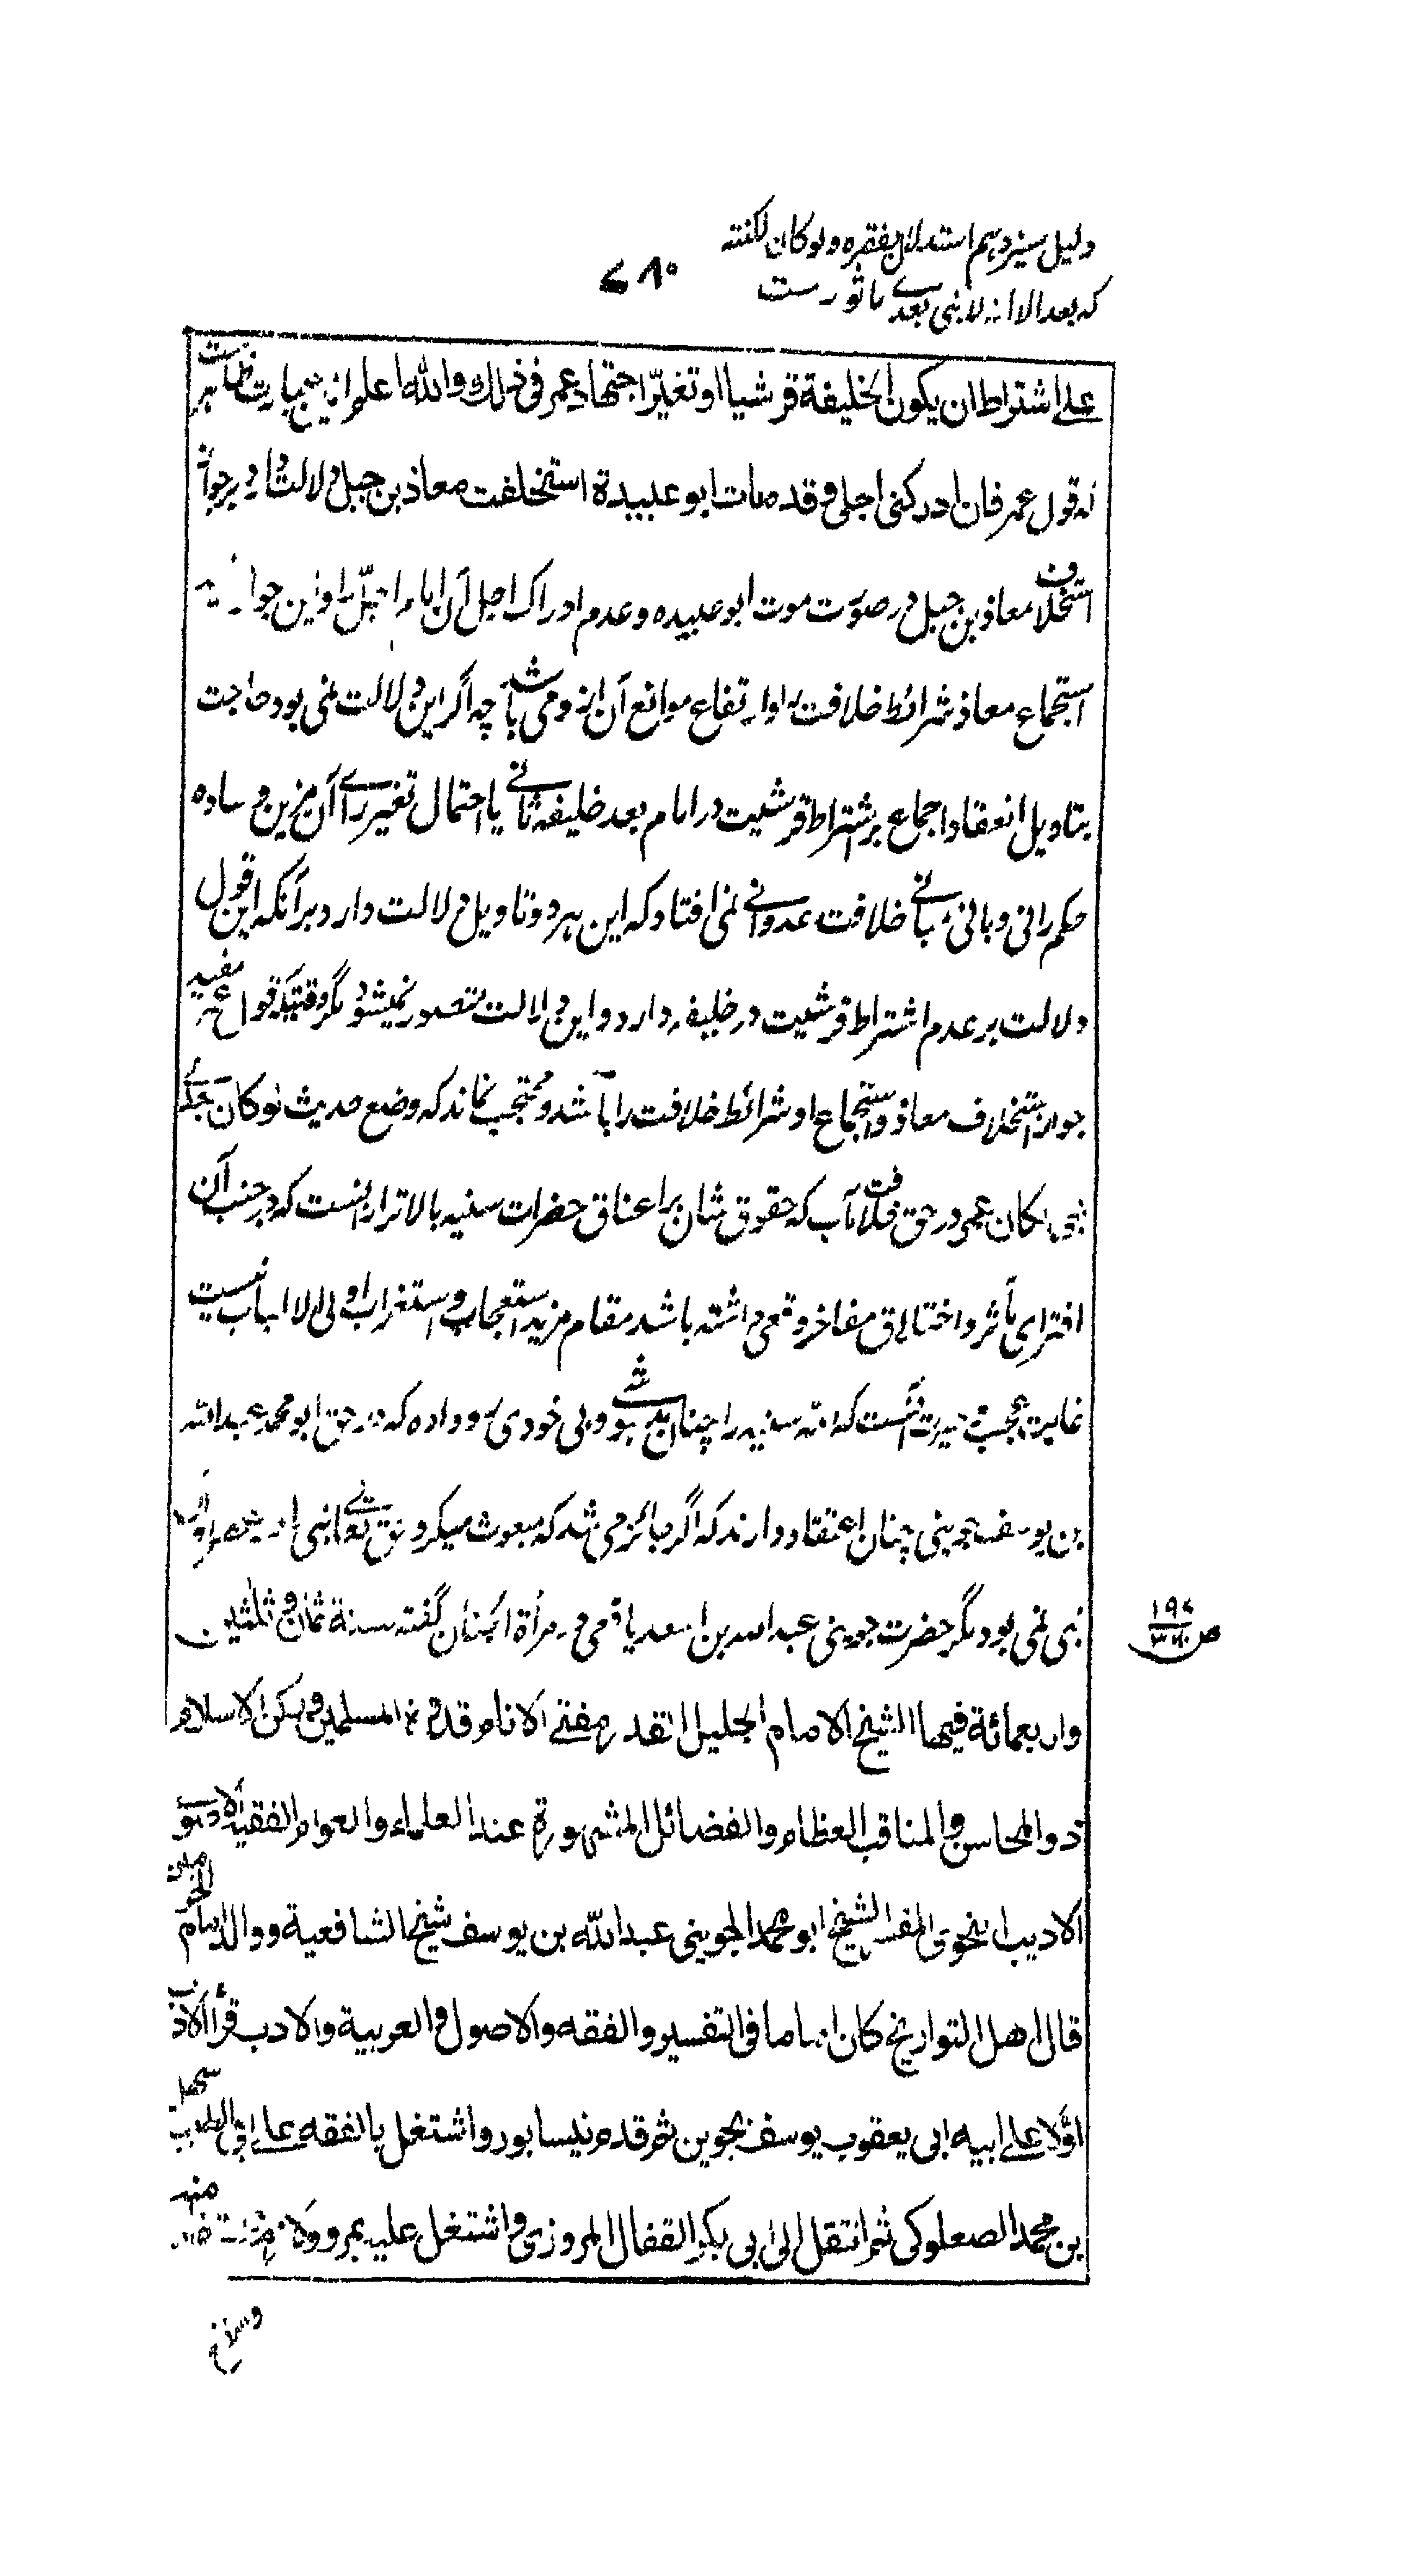 دلیل سیزدهم استدلال بفقره ولو کان لکنته
که بعد الا انه لا نبی بعدی ماثورست
۷۸۰
علی اشتراط ان یکون الخلیفة قرشیا او تغیّر اجتهاد عمر فی ذلك والله اعلم ازین عبارت ظاهر
که قول عمر فان ادرکنی اجلی وقد مات ابو عبیدة استخلفت معاذ بن جبل دلالت دارد بر جواز
استخلاف معاذ بن جبل در صورت موت ابو عبیده و عدم ادراك اجل آن امام اجلّ را و این جواز
استجماع معاذ شرائط خلافت را و ارتفاع موانع آن ازو می باشد چه اگر این دلالت نمی بود حاجت
بتاویل انعقاد اجماع بر اشتراط قرشیت در امام بعد خلیفه ثانی یا احتمال تغیر رای آن مزین وساده
حکمرانی و بانی مبانی خلافت عدوانی نمی افتاد که این هر دو تاویل دلالت دارد بر آنکه این قول
دلالت بر عدم اشتراط قرشیت در خلیفه دارد و این دلالت متصور نمیشود مگر وقتیکه قول عمر مفید
جواز استخلاف معاذ و استجماع او شرائط خلافت را باشد و محتجب نماند که وضع حدیث لو کان بعدی
نبی لکان عمر در حق خلافتمآب که حقوق شان بر اعناق حضرات سنیه بالاتر ازانست که در جنب آن
افترای مآثر و اختلاق مفاخر وقعی داشته باشد مقام مزید استعجاب و استغراب اولی الالباب نیست
غایت عجب و حیرت آنست که ائمه سنیه را چنان بیهوشی و بی خودی رو داده که در حق ابو محمد عبد الله
بن یوسف جوینی چنان اعتقاد دارند که اگر جائز می شد که مبعوث میکرد حق تعالی نبی را در عصر او
نبی نمی بود مگر حضرت جوینی عبد الله بن اسعد یافعی در مرآة الجنان گفته سنة ثمان و ثلثین
واربعمائة فیها الشیخ الامام الجلیل القدر مفتی الانام قدوة المسلمین ورکن الاسلام
ذو المحاسن والمناقب العظام والفضائل المشهورة عند العلماء والعوام الفقیه الاصولی
الادیب النحوی المفسر الشیخ ابو محمد الجوینی عبد الله بن یوسف شیخ الشافعیة ووالد امام الحرمین
قال اهل التواریخ کان اماما فی التفسیر والفقه والاصول والعربیة والادب قرأ الادب
اوّلا علی ابیه ابی یعقوب یوسف بجوین ثم قدم نیسابور واشتغل بالفقه علی ابی الطیب سهل
بن محمد الصعلوکی ثم انتقل الی ابی بکر القفال المروزی واشتغل علیه بمرو ولازمه
ص ۱۹۷